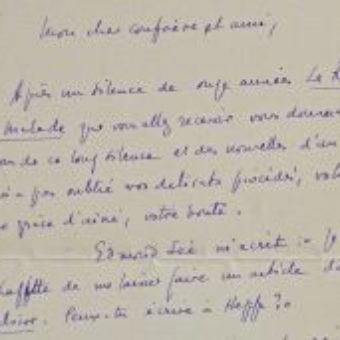 Mon cher confrère et ami,
Après un silence de onze années Le
Malade que vous allez recevoir vous donnera
de ce long silence et des nouvelles d'un
pas oublié vos delicats procédés, votre
grâce d'aîné, votre bonté.
Edmond Sée m'écrit :
de me laisser faire un article
Peux-tu écrire à Hepp ?